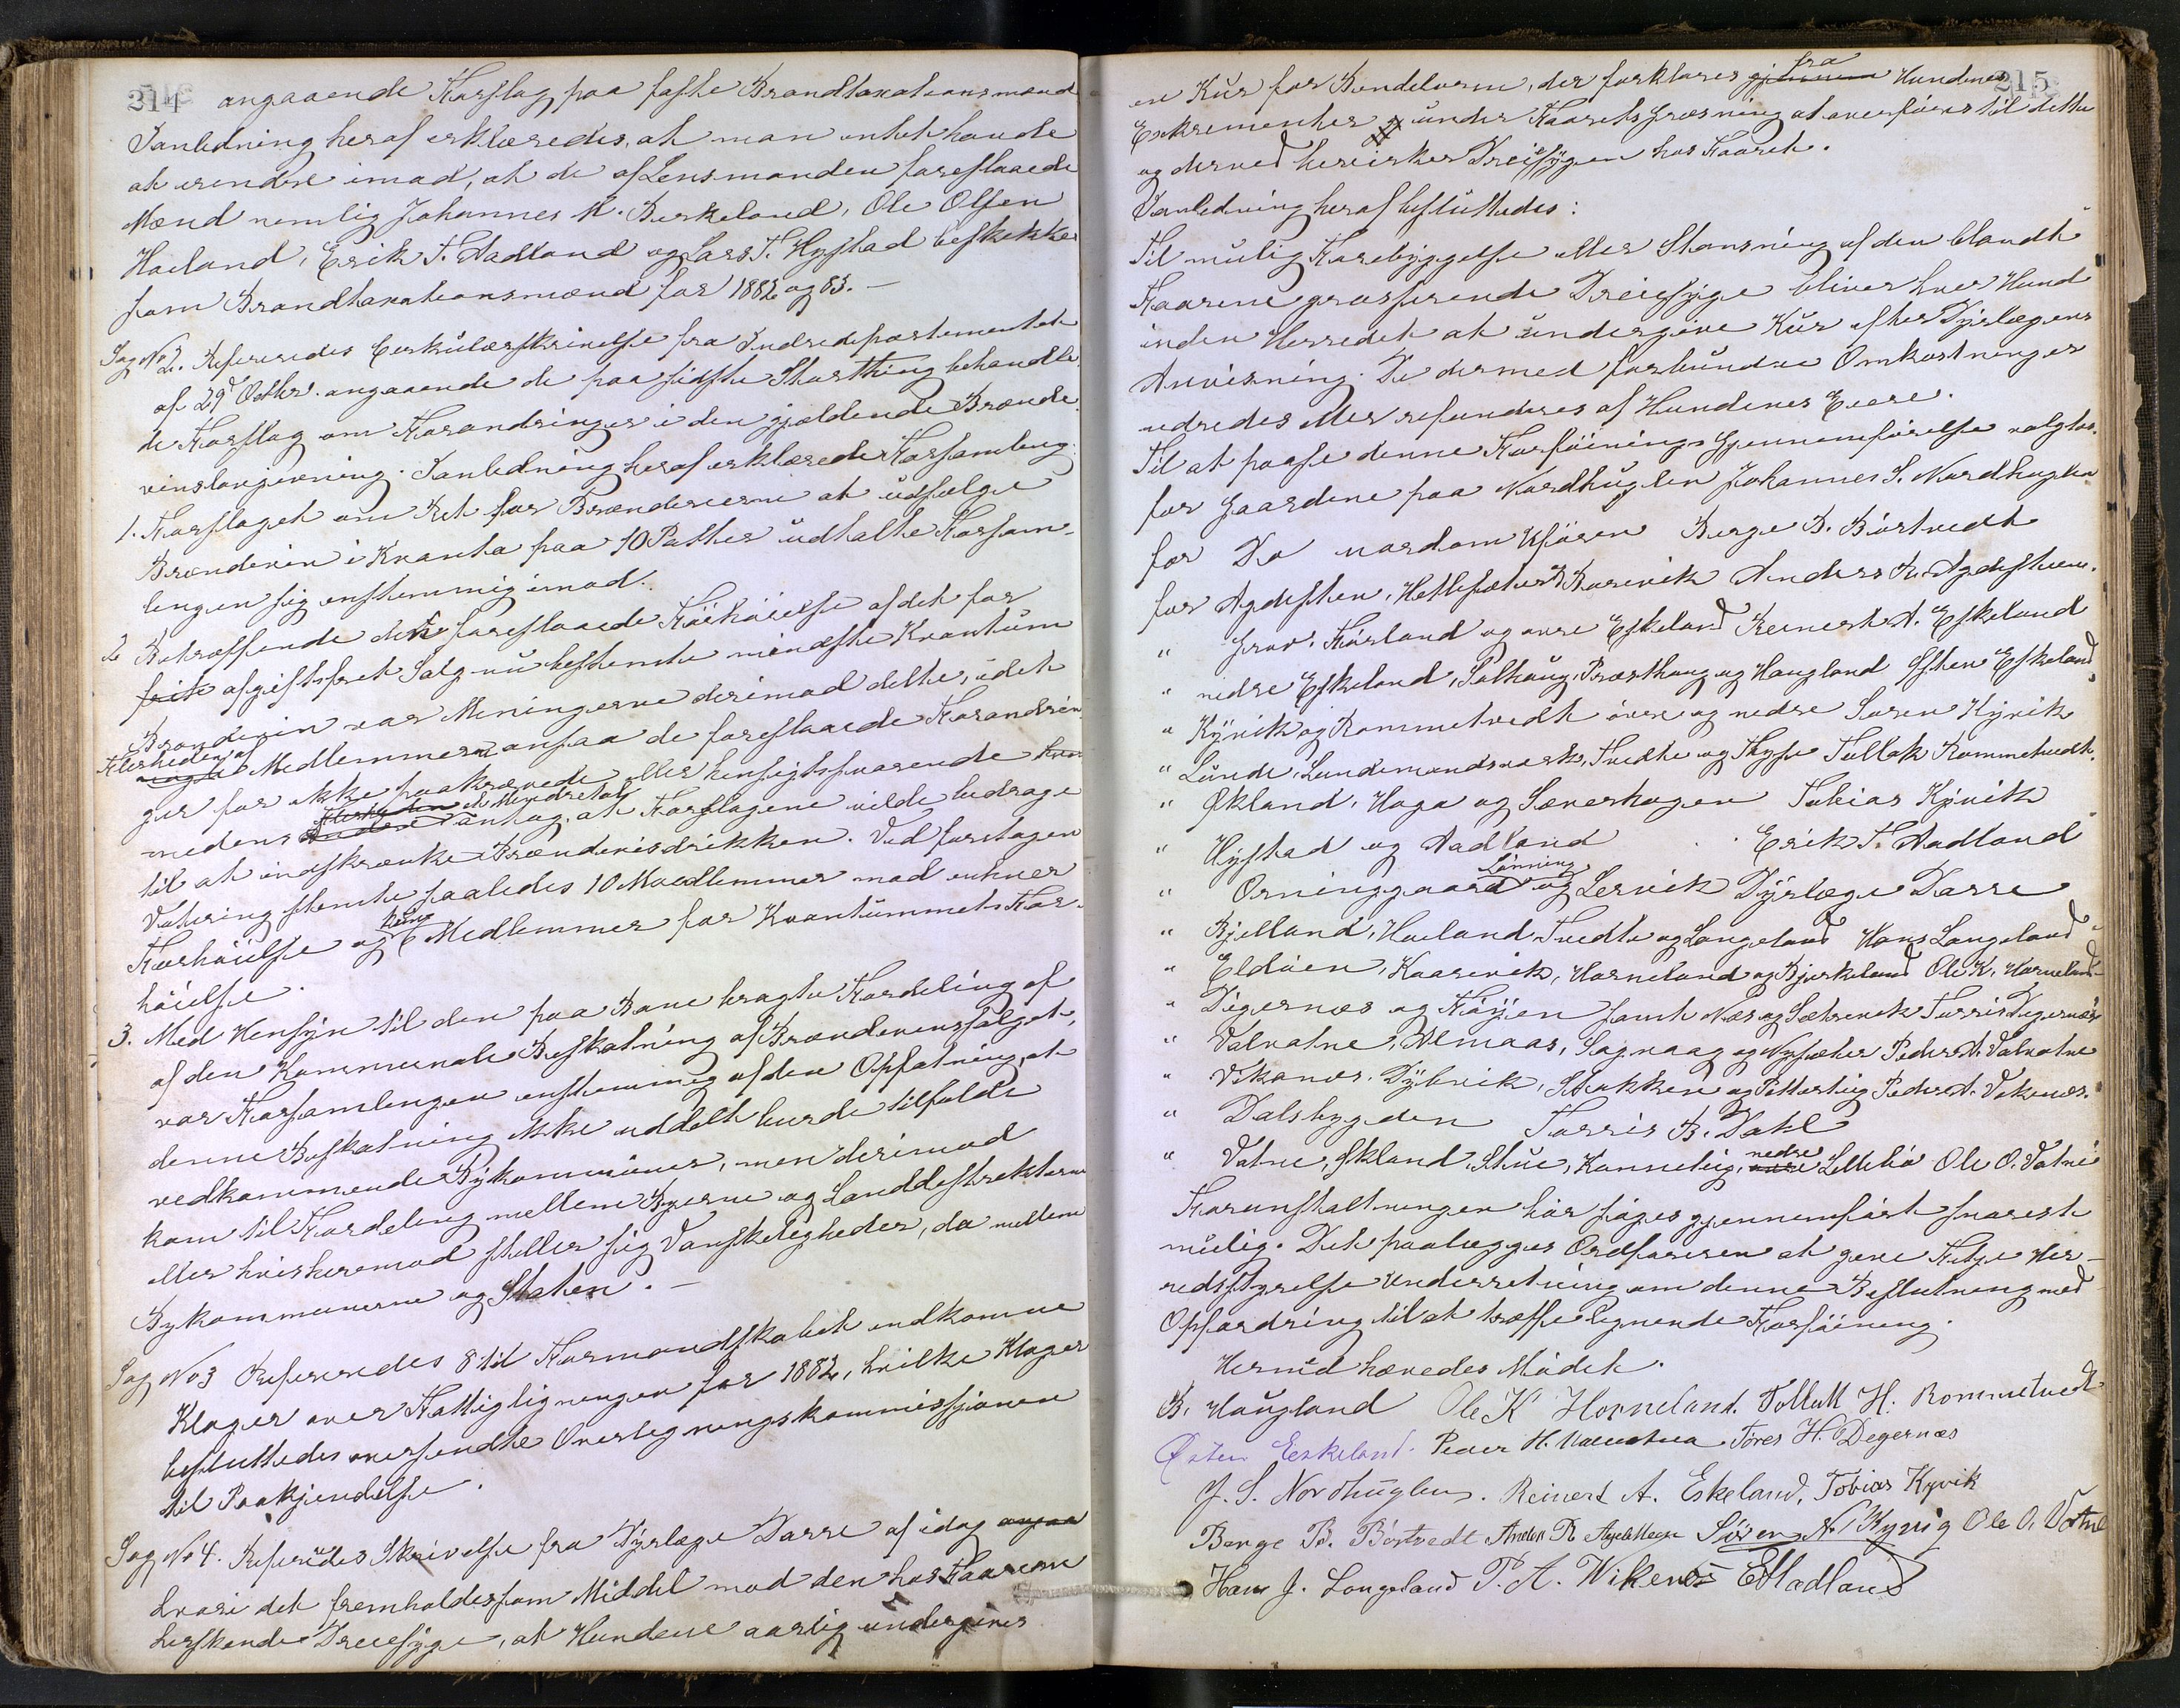 214
angaaende Forslag paa faste Brandtaxationsmænd
Ianledning heraf erklæredes, at man intet havde
at erendre imod, at de af Lensmanden foreslaaede
Mænd nemlig Johannes M. Birkeland, Ole Olsen
Haaland, Erik T. Aadland og Lars T. Hystad beskikkes
som Brandtaxationsmænd for 1882 og 83. —
Sag No 2. Refereredes Cirkulærskrivelse fra Indredepartementet
af 29d Octbr. angaaende de paa sidste Storthing behandle-
de Forslag om Forandringer i den gjældende Brænde-
vinslovgivning. Ianledning heraf erklærede Forsamling:
1. Forslaget om Ret for Brænderierne at udsælge
Brændevin i Kvanta paa 10 Potter udtalte Forsam-
lingen sig enstemmig imod.
2 Betræffende den foreslaaede Forhøielse af det for
frit afgiftsfrit Salg nu bestemte mindste Kvantum
Brændevin var Meningerne derimod delte, idet
Flerheden af
nogle Medlemmer ansaa de foreslaaede Forandrin-
ger for ikke paakrævede eller hensigtssvarende hvor
Flerheden et Mindretal
medens andre antog, at Forslagene vilde bidrage
til at indskrænke Brændevinsdrikken. Ved foretagen
Votering stemte saaledes 10 Medlemmer mod enhver
kun
Forhøielse og 6 Medlemmer for Kvantummets For-
høielse.
3. Med Hensyn til den paa Bane bragte Fordeling af
af den Kommunale Beskatning af Brændevinssalget,
var Forsamlingen enstemmig af den Opfatning, at
denne Beskatning ikke uddelt burde tilfalde
vedkommende Bykommuner, men derimod
kom til Fordeling mellem Byerne og Landdistrikterne
eller hvis heremod stiller sig Vanskeligheder, da mellem
Bykommunerne og Staten. —
Sag No 3 Refereredes 8 til Formandskabet indkomne
Klager over Fattigligningen for 1882, hvilke Klager
besluttedes oversendte Overligningskommissionen
til Paakjendelse.
Sag No 4. Refereredes Skrivelse fra Dyrlæge Dasse af idag angaa
hvori det fremholdes som Middel mod den hos Faarene
herskende Dreiesyge, at Hundene aarlig undergives
215
fra
en Kur for Bendelorm, der forklares gjennem Hundenes
Exkrementer # under Faarets Græsning at overføres til dette
og derved bevirker Dreiesygen hos Faaret.
Ianledning heraf besluttedes:
Til mulig Forebyggelse eller Standsning af den blandt
Faarene grasserende Dreiesyge bliver hver Hund
inden Herredet at undergive Kur efter Dyrlægens
Anvisning. De dermed forbundne Omkostninger
udredes eller refunderes af Hundenes Eiere.
Til at paase denne Forføinings Gjennemførelse valgtes
for Gaardene paa Nordhuglen Johannes S. Nordhuglen
for Do nordom Uføren Berge B. Børtvedt
for Agdesten, Hettesæter & Kaarevik Anders R. Agdesteen.
" Grov, Førland og øvre Eskeland Reinert A. Eskeland
" nedre Eskeland, Solhaug, Præsthaug og Haugland Østen Eskeland
" Kyvik og Rommetvedt øvre og nedre Søren Kyvik
" Lunde, Lundemandsværk, Tvedte og Thyse Tollak Rommetvedt
" Økland, Haga og Sæverhagen Tobias Kyvik
" Hystad og Aadland Erik T. Aadland
Lønning
" Orninggaard og Lervik Dyrlæge Dasse
" Bjelland, Hovland Tvedte og Langeland Hans Langeland
" Eldøen, Kaarevik, Horneland og Bjørkeland Ole K. Horneland
" Digernæs og Føyen samt Næs og Sætrevik Torris Digernæs
" Valvatne, Almaas, Sagvaag og Nysæter Peder H. Valvatne
" Vikanes, Dybvik, Stokken og Pottertig Peder A. Vikenæs.
" Dalsbygden Torris B. Dahl
nedre
" Vatne, Økland, Stue, Kannelig, øvre Lillebø Ole O. Vatne
Foranstaltningen bør søges gjennemført snarest
mulig. Det paalægges Ordføreren at give Fitje Her-
redsstyrelse Underretning om denne Beslutning med
Opfordring til at træffe lignende Forføining.
Hermed hævedes Mødet.
B. Haugland Ole K Horneland. Tollak H. Rommetvedt
Østen Eskeland. Peder H. Valvatna Tøres H. Degernæs
J. S. Nordhuglen. Reinert A. Eskeland, Tobias Kyvik
Berge B. Børtvedt Anders R Agdesteen Søren N. Kyvig Ole O. Vatne
Hans J. Langeland P. A. Wikenes E Aadland